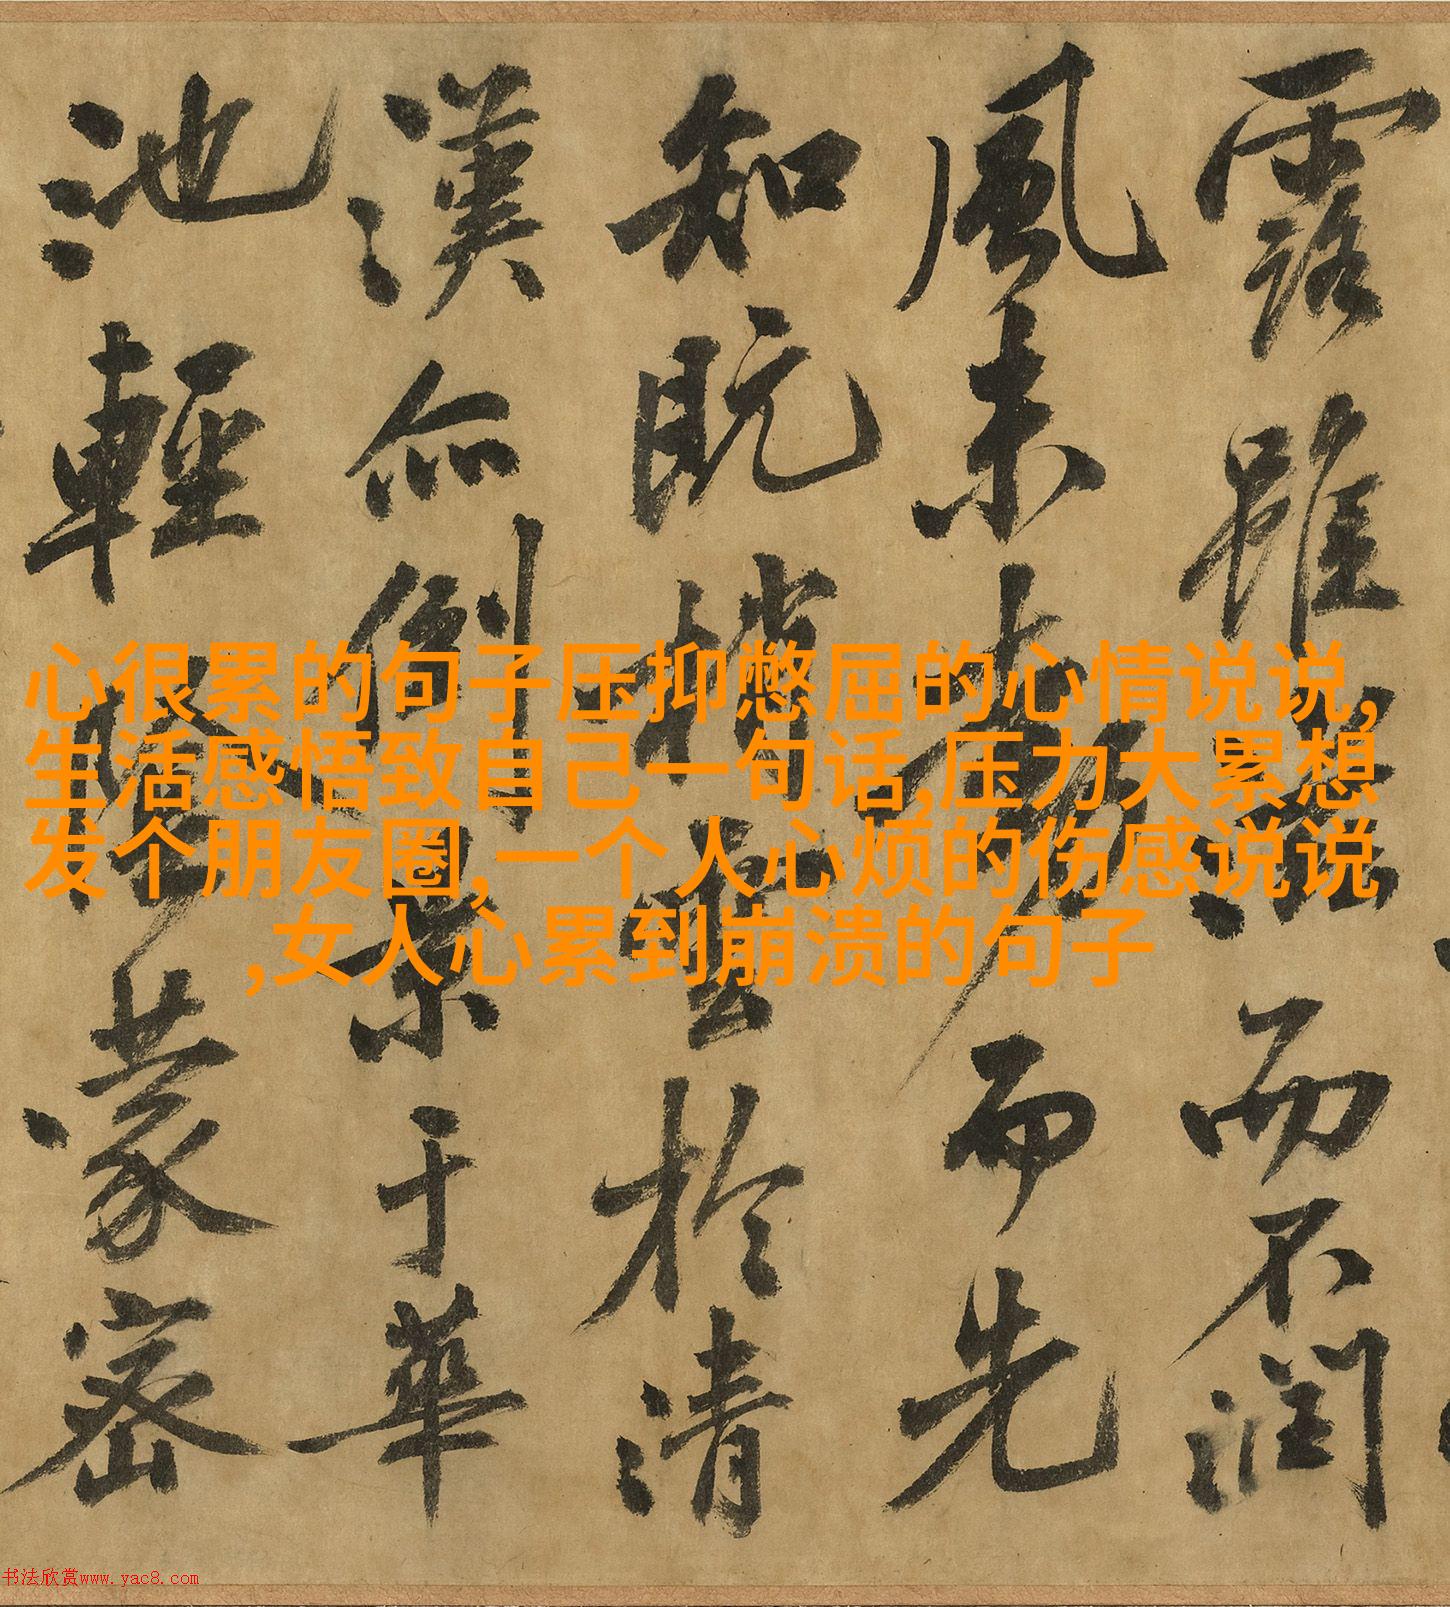 露雖而不潤
風未而先
知既梢雲於清
漢亦倒景于華
池輕陰蒙密
心很累的句子压抑憋屈的心情说说,
生活感悟致自己一句话,压力大累想
发个朋友圈,一个人心烦的伤感说说
,女人心累到崩溃的句子
书法欣赏www.yac8.com